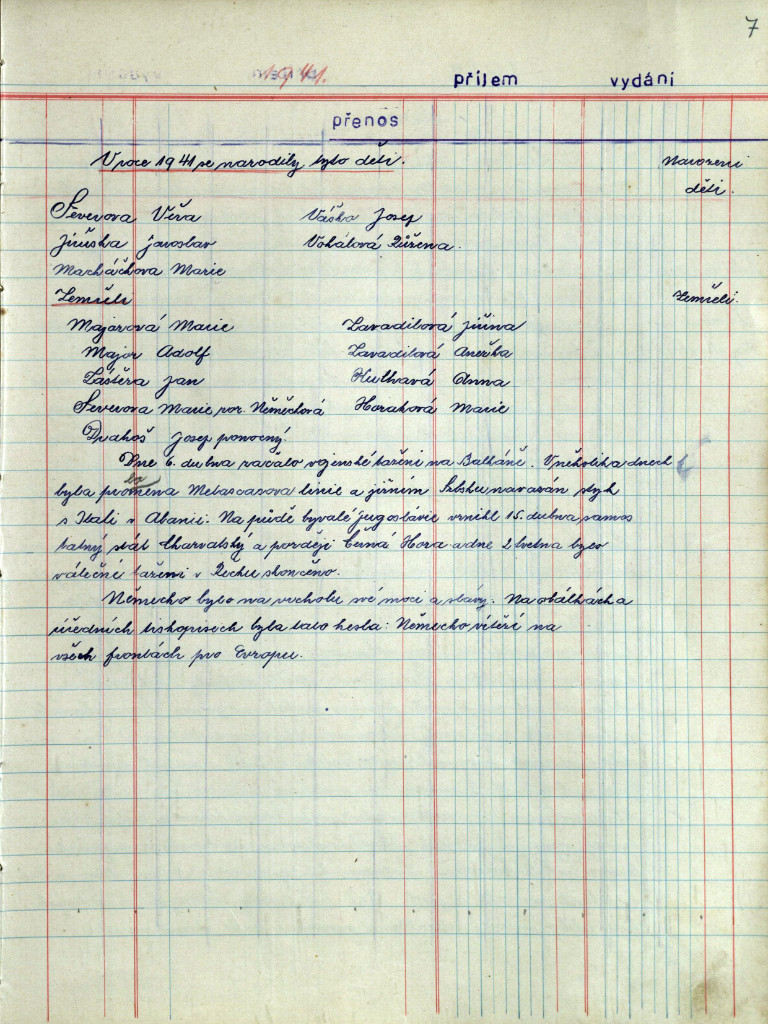 7
1941.
příjem vydání
přenos
V roce 1941 se narodily tyto děti. Narození
děti.
Severova Věra Vaška Josef
Jiruška Jaroslav Vohálová Růžena.
Macháčkova Marie
Zemřeli Zemřeli.
Majorová Marie Zavadilová Jiřina
Major Adolf Zavadilová Anežka
Záštěra Jan Kuthavá Anna
Severova Marie roz. Němečková Horaková Marie
Drahoš Josef ponocný.
Dne 6. dubna začalo vojenské tažení na Balkáně. V několika dnech
byla promena Metaxasova linie a jižním Srbsku navazán styk
lo
s Itali v Abanii. Na půdě byvalé Jugoslávie vznikl 15. dubna samos
tatný stát Charvatský a později Černá Hora a dne 2 května bylo
válečné tažení v Řecku skončeno.
Německo bylo na vrcholu své moci a slávy. Na obálkách a
úředních tiskopisech byla tato hesla: Německo vítězí na
všech frontách pro Evropu.